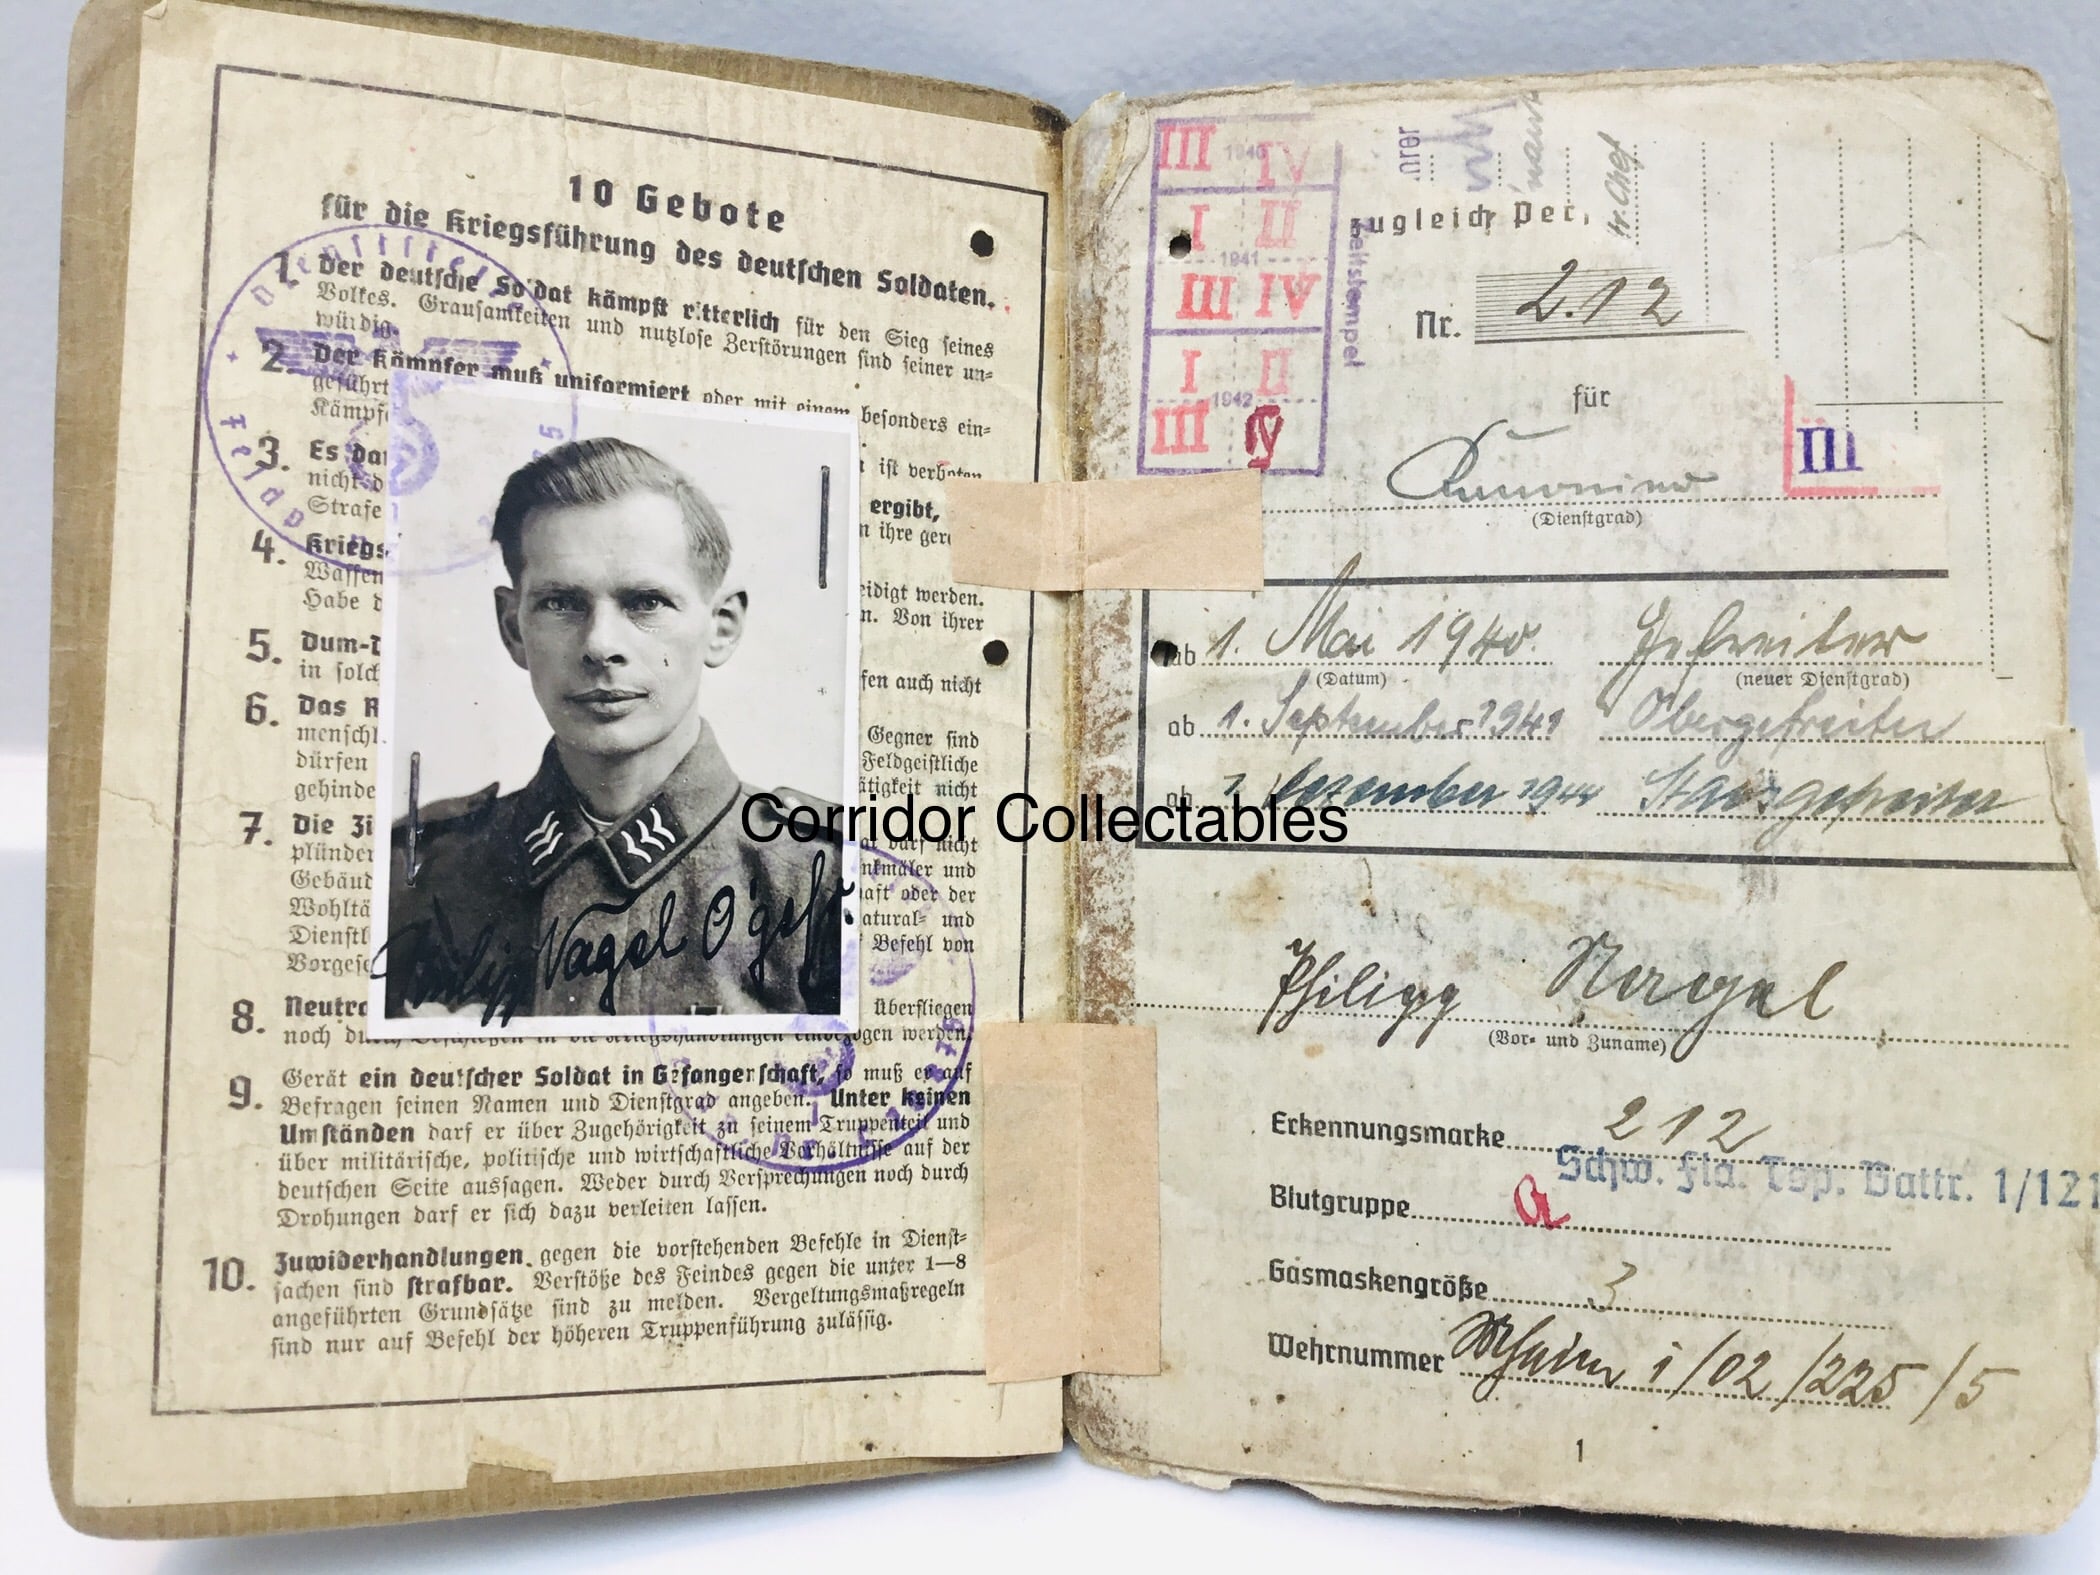 10 Gebote
für die Kriegsführung des deutschen Soldaten.
1. Der deutsche Soldat kämpft ritterlich für den Sieg seines
Volkes. Grausamkeiten und nutzlose Zerstörungen sind seiner un-
würdig.
2. Der Kämpfer muß uniformiert oder mit einem besonders ein-
geführt
Kämpf
3. Es da ist verboten
nicht d
Strafe ergibt,
4. Kriegs n ihre ger
Waffen
Habe d eidigt werden.
5. Dum-D n. Von ihrer
in solch fen auch nicht
6. Das R
menschl. Gegner sind
dürfen Feldgeistliche
gehinde ätigkeit nicht
7. Die Zi
plünder at darf nicht
Gebäud nkmäler und
Wohltä haft oder der
Dienstl atural- und
Vorgese Befehl von
8. Neutra überfliegen
noch durch Beschießen in die Kriegshandlungen einbezogen werden.
9. Gerät ein deutscher Soldat in Gefangenschaft, so muß er auf
Befragen seinen Namen und Dienstgrad angeben. Unter keinen
Umständen darf er über Zugehörigkeit zu seinem Truppenteil und
über militärische, politische und wirtschaftliche Verhältnisse auf der
deutschen Seite aussagen. Weder durch Versprechungen noch durch
Drohungen darf er sich dazu verleiten lassen.
10. Zuwiderhandlungen gegen die vorstehenden Befehle in Dienst-
sachen sind strafbar. Verstöße des Feindes gegen die unter 1—8
angeführten Grundsätze sind zu melden. Vergeltungsmaßregeln
sind nur auf Befehl der höheren Truppenführung zulässig.
Dienststelle
Feldp
Philipp Nagel O'gefr.
Corridor Collectables
III 1940 IV
I II
1941
III IV
I II
1942
III IV
Zeitstempel
zugleich Per
Nr. 2.12
für
III
Kanonier
(Dienstgrad)
ab 1. Mai 1940. Gefreiter
(Datum) (neuer Dienstgrad)
ab 1. September 1941 Obergefreiter
ab 1. Dezember 1944 Stabsgefreiter
Philipp Nagel
(Vor- und Zuname)
Erkennungsmarke 212
Schw. Fla. Tsp. Battr. 1/121
Blutgruppe a
Gasmaskengröße 3
Wehrnummer 1/02/225/5
1